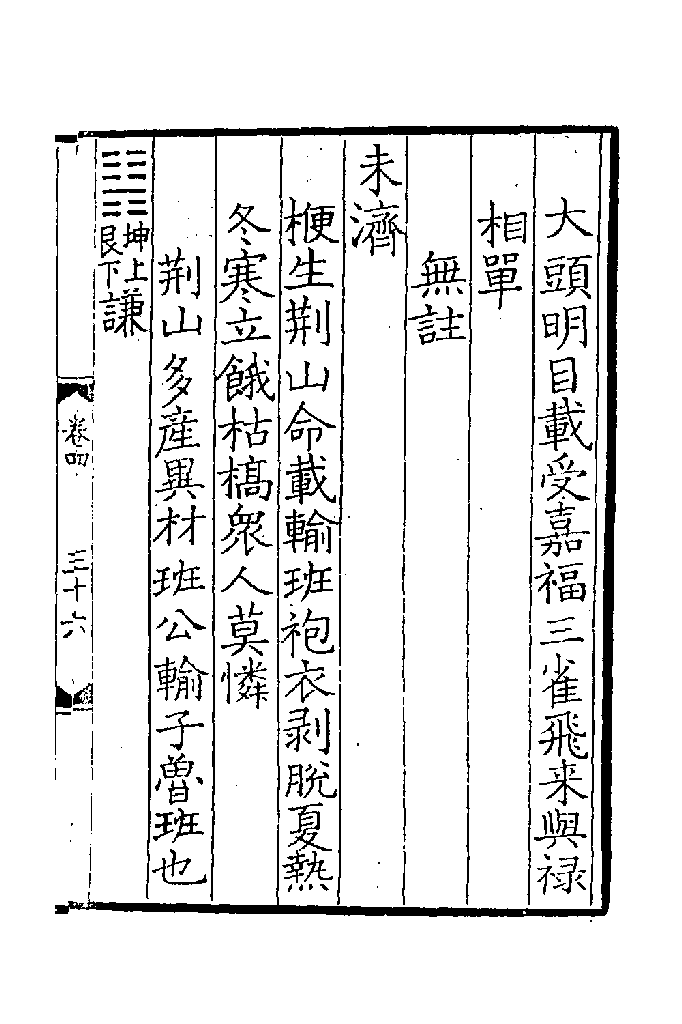 大頭明目載受嘉福三雀飛来與禄
相單
無註
未濟
楩生荆山命載輸班袍衣剥脱夏熱
冬寒立餓枯槁衆人莫憐
荆山多產異材班公輸子魯班也
坤上
艮下
謙
卷四
三十六